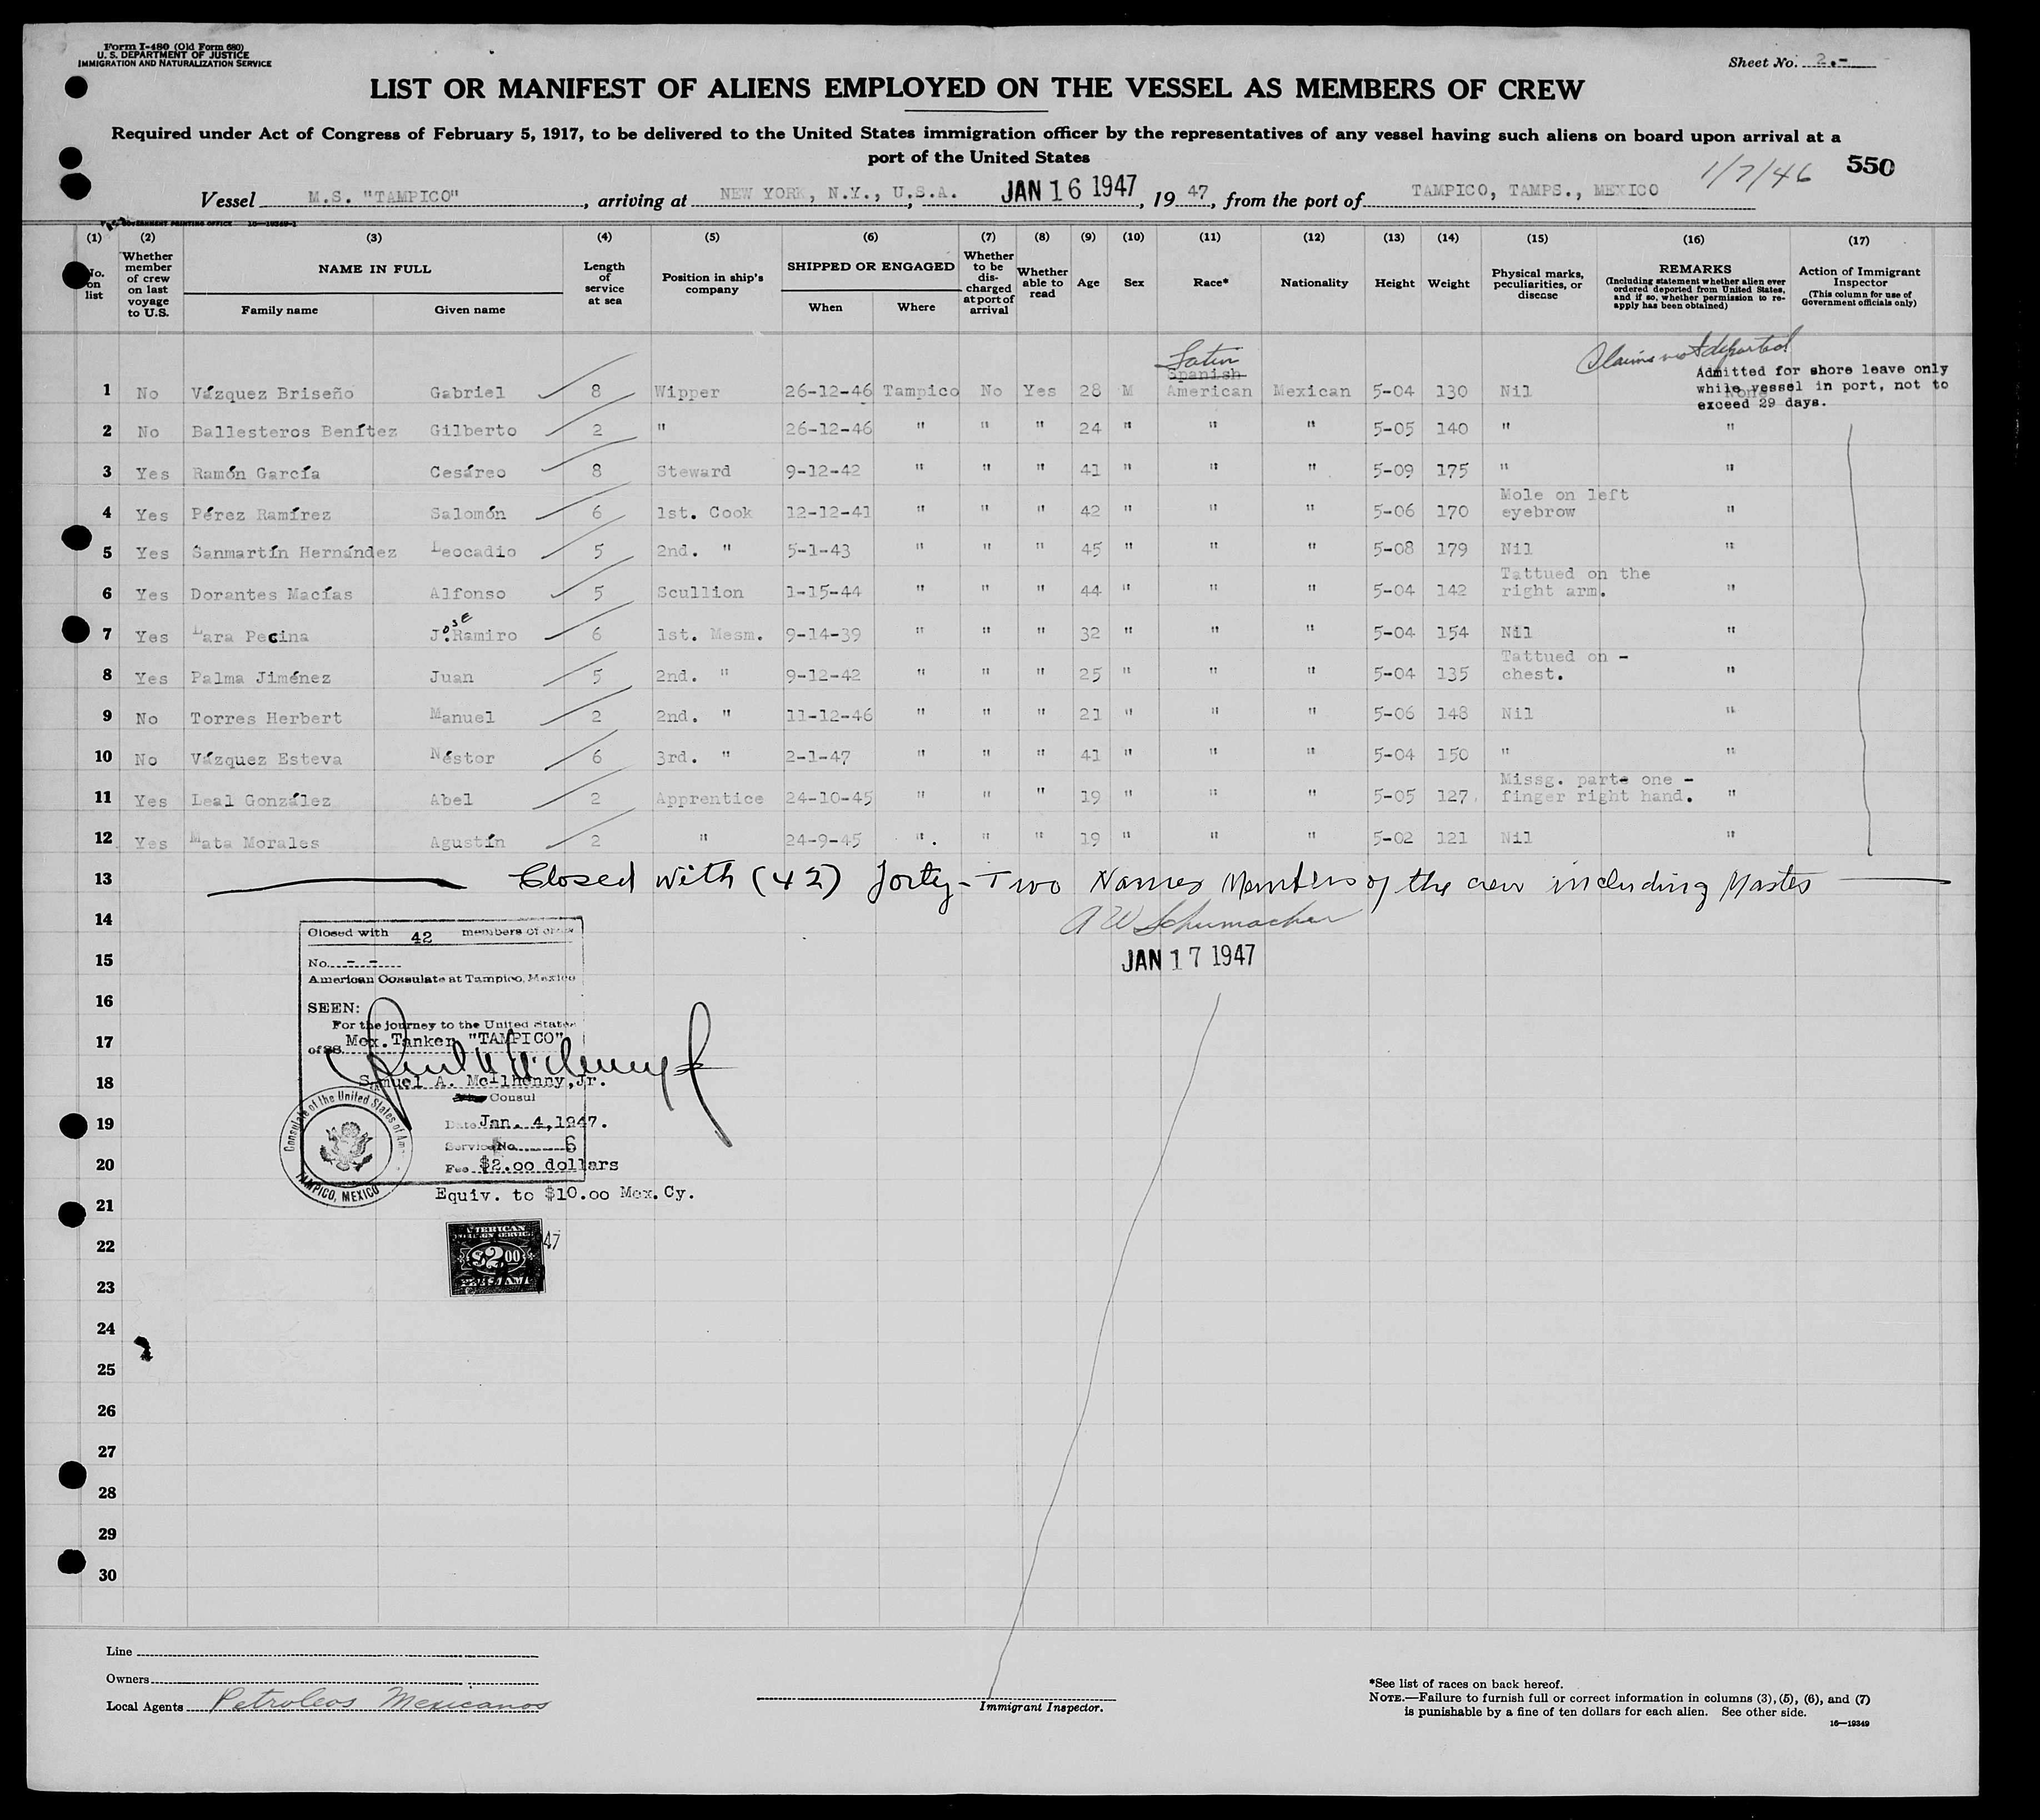 Form I-480 (Old Form 680)
U. S. DEPARTMENT OF JUSTICE
IMMIGRATION AND NATURALIZATION SERVICE
Sheet No. 2.-
LIST OR MANIFEST OF ALIENS EMPLOYED ON THE VESSEL AS MEMBERS OF CREW
Required under Act of Congress of February 5, 1917, to be delivered to the United States immigration officer by the representatives of any vessel having such aliens on board upon arrival at a
port of the United States
1/7/46 550
Vessel M.S. "TAMPICO", arriving at NEW YORK, N.Y., U.S.A. JAN 16 1947, 19 47, from the port of TAMPICO, TAMPS., MEXICO
GOVERNMENT PRINTING OFFICE 16—19349-1
(1) (2) (3) (4) (5) (6) (7) (8) (9) (10) (11) (12) (13) (14) (15) (16) (17)
No. on list
Whether member of crew on last voyage to U.S.
NAME IN FULL
Family name Given name
Length of service at sea
Position in ship's company
SHIPPED OR ENGAGED
When Where
Whether to be discharged at port of arrival
Whether able to read
Age
Sex
Race*
Nationality
Height
Weight
Physical marks, peculiarities, or disease
REMARKS
(Including statement whether alien ever ordered deported from United States, and if so, whether permission to re-apply has been obtained)
Action of Immigrant Inspector
(This column for use of Government officials only)
Latin
Claims not deported
Spanish
Admitted for shore leave only
while vessel in port, not to
exceed 29 days.
1 No Vázquez Briseño Gabriel 8 Wipper 26-12-46 Tampico No Yes 28 M American Mexican 5-04 130 Nil None
2 No Ballesteros Benítez Gilberto 2 " 26-12-46 " " " 24 " " " 5-05 140 " "
3 Yes Ramón García Cesáreo 8 Steward 9-12-42 " " " 41 " " " 5-09 175 " "
4 Yes Pérez Ramírez Salomón 6 1st. Cook 12-12-41 " " " 42 " " " 5-06 170 Mole on left eyebrow "
5 Yes Sanmartín Hernández Leocadio 5 2nd. " 5-1-43 " " " 45 " " " 5-08 179 Nil "
6 Yes Dorantes Macías Alfonso 5 Scullion 1-15-44 " " " 44 " " " 5-04 142 Tattued on the right arm. "
7 Yes Lara Pecina J. José Ramiro 6 1st. Mesm. 9-14-39 " " " 32 " " " 5-04 154 Nil "
8 Yes Palma Jiménez Juan 5 2nd. " 9-12-42 " " " 25 " " " 5-04 135 Tattued on - chest. "
9 No Torres Herbert Manuel 2 2nd. " 11-12-46 " " " 21 " " " 5-06 148 Nil "
10 No Vázquez Esteva Néstor 6 3rd. " 2-1-47 " " " 41 " " " 5-04 150 " "
11 Yes Leal González Abel 2 Apprentice 24-10-45 " " " 19 " " " 5-05 127 Missg. parte one - finger right hand. "
12 Yes Mata Morales Agustín 2 " 24-9-45 ". " " 19 " " " 5-02 121 Nil "
13 Closed with (42) forty-Two Names Members of the crew including Master
14 A W Schumacher
15 JAN 17 1947
16
17
18
19
20
21
22
23
24
25
26
27
28
29
30
Closed with 42 members of crew
No. - -
American Consulate at Tampico, Mexico
SEEN:
For the journey to the United States
of SS. Mex. Tanker "TAMPICO"
Samuel A. McIlhenny, Jr.
Consul
Date Jan. 4, 1947.
Service No. 6
Fee $2.00 dollars
Equiv. to $10.00 Mex. Cy.
Consulate of the United States of Am
TAMPICO, MEXICO
AMERICAN
$2.00
47
Line
Owners
Local Agents Petroleos Mexicanos
Immigrant Inspector.
*See list of races on back hereof.
NOTE.—Failure to furnish full or correct information in columns (3), (5), (6), and (7)
is punishable by a fine of ten dollars for each alien. See other side.
16—19349